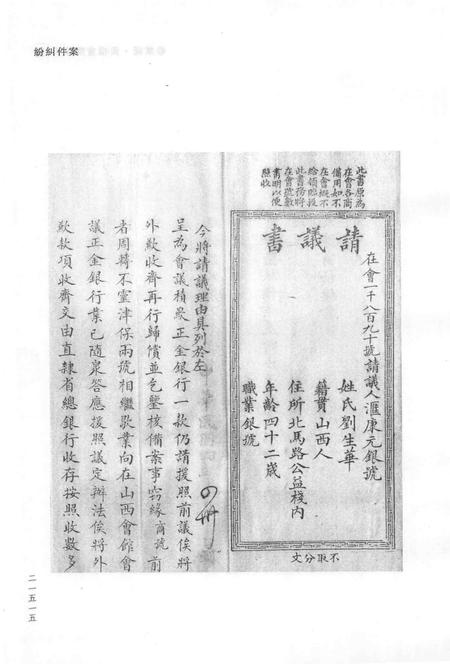 紛糾件案
此書原為
在會各商
備用如不
在會概不
給領臨投
此書務將
在會號數
書明以便
照收
請議書
在會一千八百九十號請議人滙康元銀號
姓氏劉生華
籍貫山西人
住所北馬路公益棧內
年齡四十二歲
職業銀號
不取分文
今將請議理由具列於左
呈為會議積欠正金銀行一款仍請援照前議俟將
外歉收齊再行歸償並包鑒核備案事竊緣商號前
者周轉不靈津保兩號相繼歇業向在山西會館會
議正金銀行業已隨衆答應援照議定辦法俟將外
歉款項收齊交由直隸省總銀行收存按照收數多
二一五一五